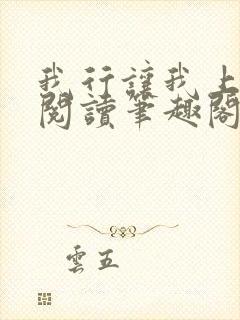 我行讓我上
閱讀筆趣閣
雲五